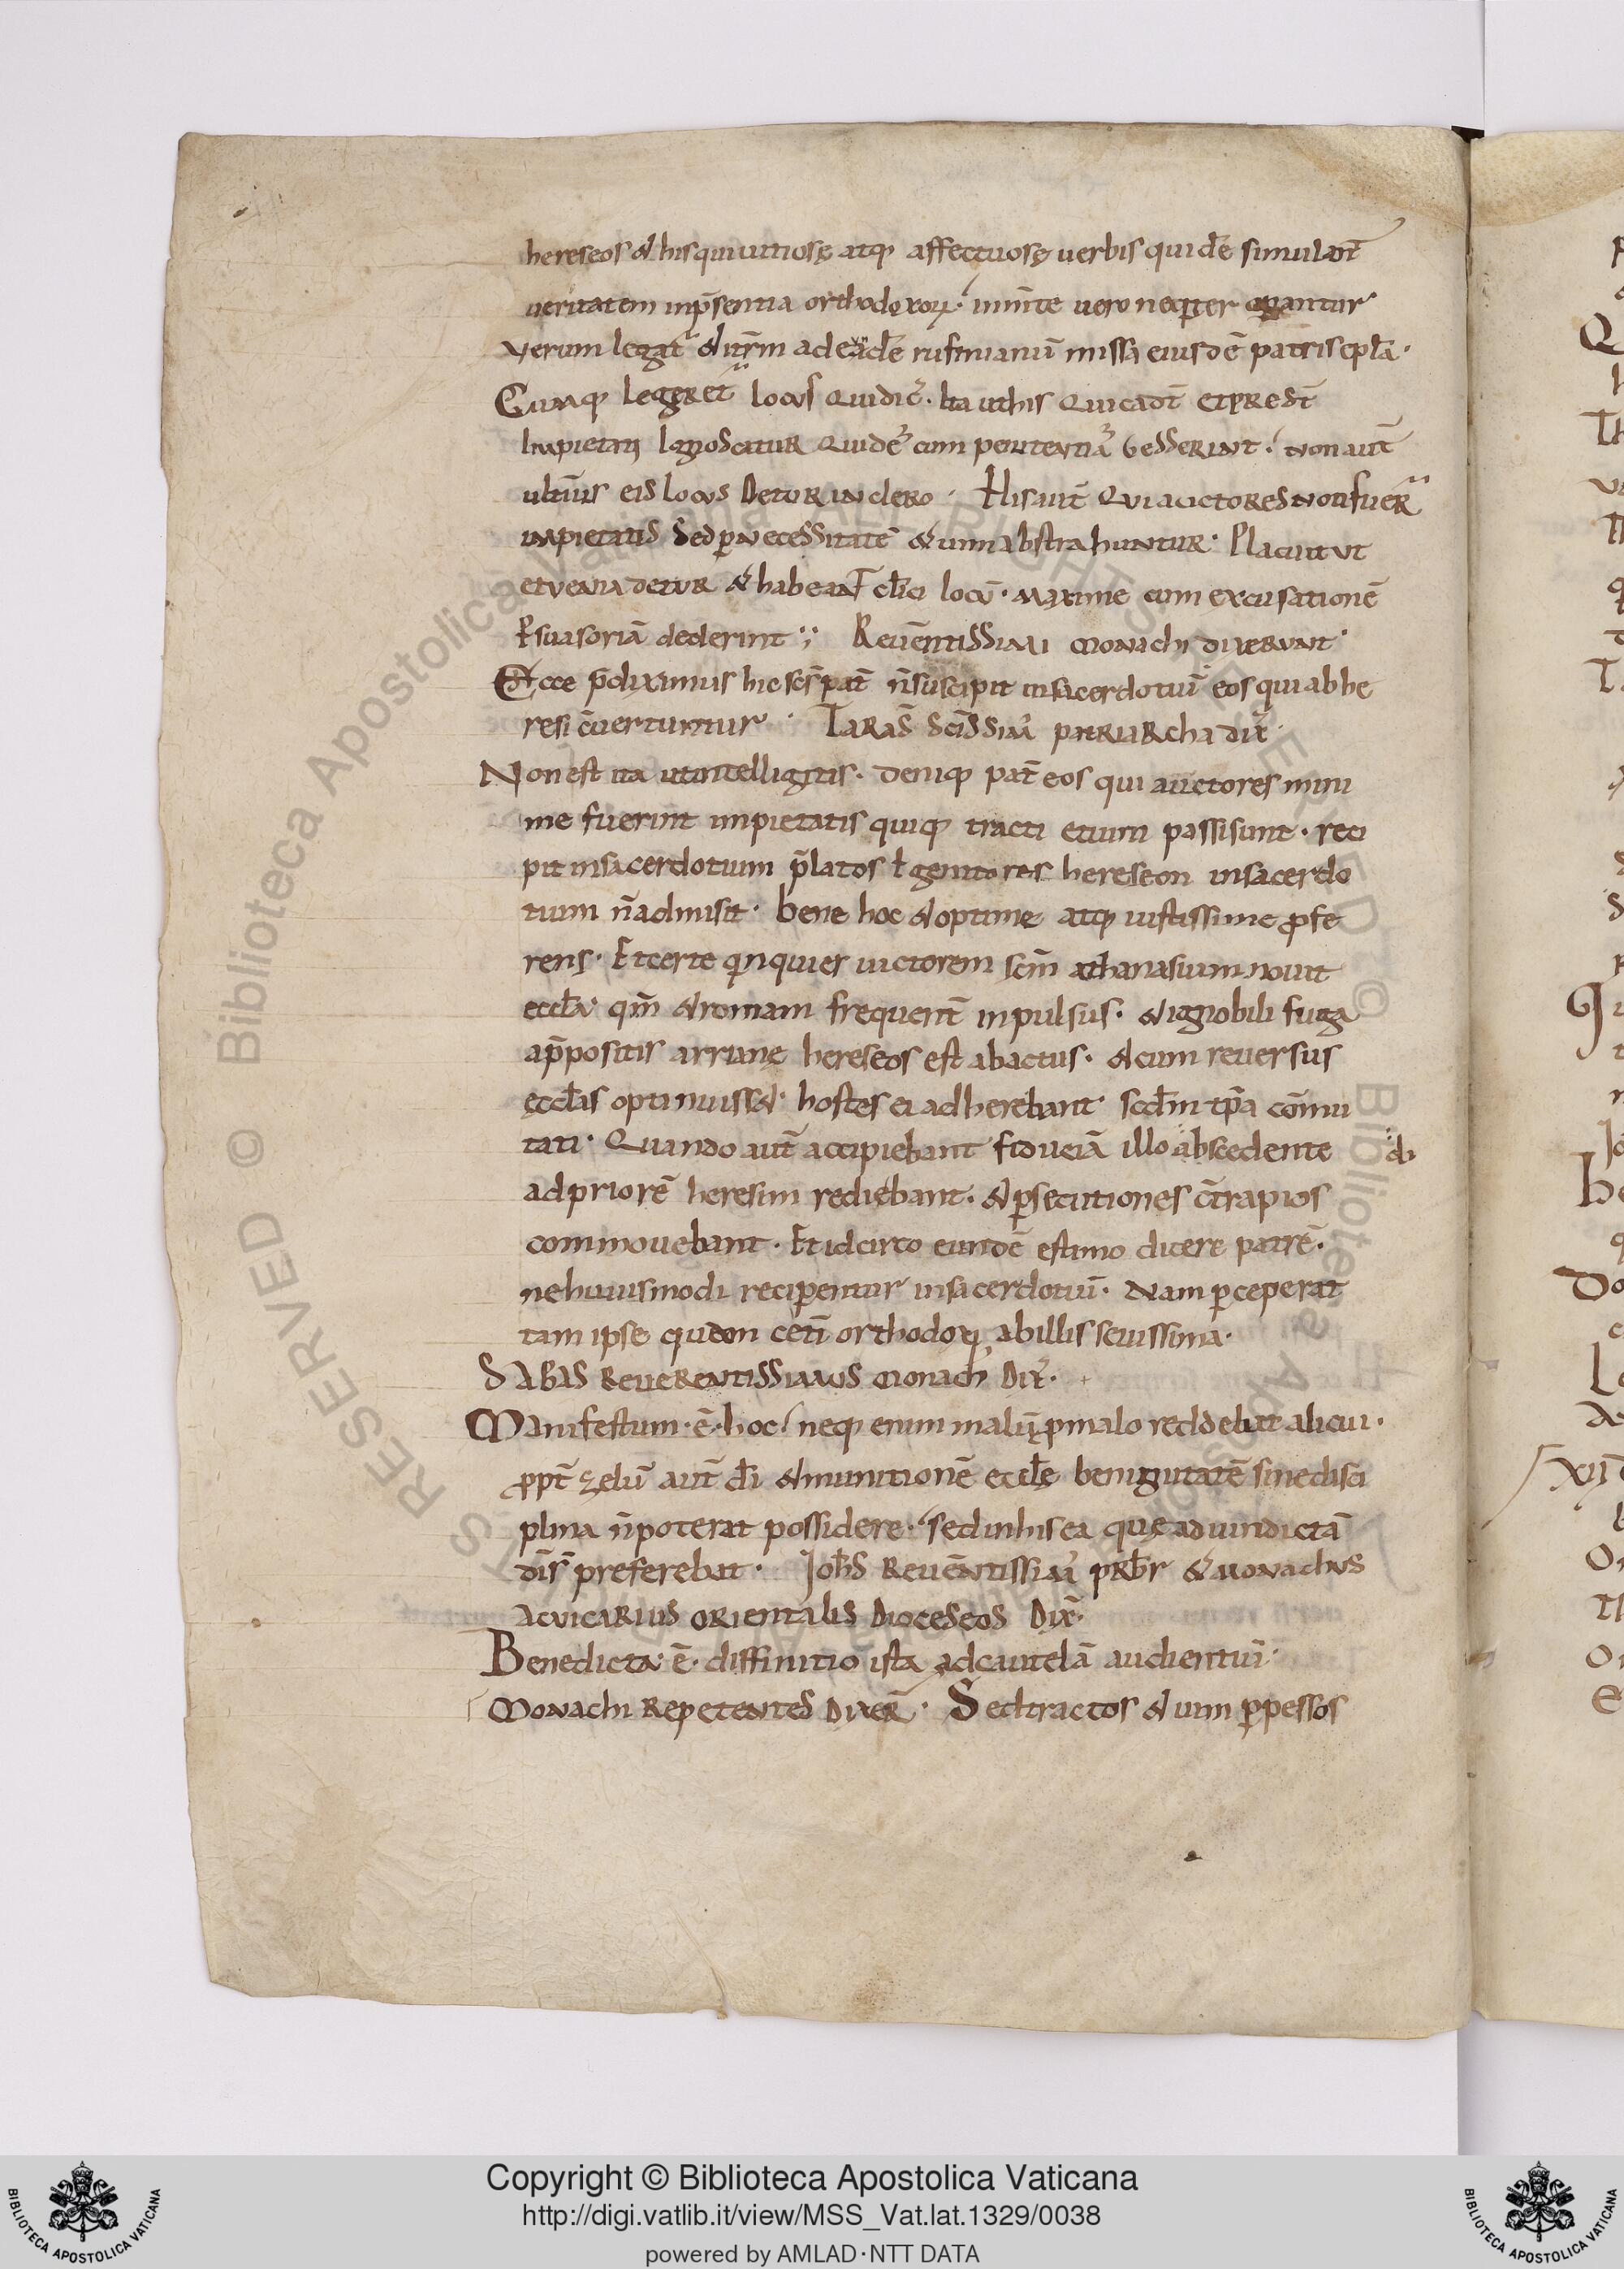 hereseos & his qui uitiosę atq; affectuosę uerbis quidē simulant̄
ueritatem inp̄sentia orthodoxoꝝ. in m̄te uero neq̄ter operantur
Verum legat̄ & itr̄m ad eadē rufinianū missa eiusdē patris epl̄a.
Cumq; legeret̄ locus qui dic̄. Ita ut his qui cadt̄ et predt̄
Impietati Ignoscitur quidē cum penitentiā Gesserint. non aut̄
ulterius eis locus Detur in clero. His aut̄ Qui auctores non fuer̄
impietatis Sed p̄ necessitatē & uim abstrahuntur. Placuit ut
et venia detur & habeant cl̄ici locū. maxime cum excusationē
Psuasoriā dederint. Reuēntissimi monachi dixerunt.
Ecce p̄diximus hic scs̄ pat̄ n̄ suscipit in sacerdotiū eos qui ab he
resi c̄uertuntur. Taras̄ Scis̄sim̄ patriarcha dix̄
Non est ita ut intelligitis. deniq; pat̄ eos qui auctores mini
me fuerint impietatis quiq; tracti et uim passi sunt. reci
pit in sacerdotium p̄latos ł genitores hereseon in sacerdo
tium n̄ admisit. bene hoc & optime atq; iustissime ꝓfe
rens. Et certe q̄nquies uictorem scm̄ athanasium nouit
eccl̄a. qm̄ & romam frequent̄ inpulsus. & ignobili fuga
ap̄positis arrianę hereseos est abactus. & cum reuersus
ęccl̄as optinuiss&. hostes ei adherebant. scd̄m tp̄a cōmu
tati. Quando aut̄ accipiebant fiduciā illo abscedente
di
ad priorē heresim rediebant. & ꝑsecutiones c̄tra pios
commouebant. Et idcirco eundē estimo dicere patrē.
ne huiusmodi recipentur in sacerdotiū. Nam ꝑceperat
tam ipse quā c̄eti orthodoxi ab illis seuissima.
Sabas Reuerentissimus monach' Dix̄.
Manifestum. ē. hoc neq; enim malū ꝓ malo reddebat alicui.
ꝓpt̄ zelū aut̄ d̄i & munitionē eccl̄ę benignitatē sine disci
plina n̄ poterat possidere. sed in his ea quę ad uindictā
dis̄ preferebat. Johs̄ Reuēntissim̄ prb̄r & monachus
ac vicarius orientalis Dioceseos Dix̄.
Benedicta. ē. diffinitio ista ad cautelā audientiū.
Monachi Repetentes Dixer̄. Sed tractos & uim ꝑpessos
Copyright © Biblioteca Apostolica Vaticana
http://digi.vatlib.it/view/MSS_Vat.lat.1329/0038
powered by AMLAD·NTT DATA